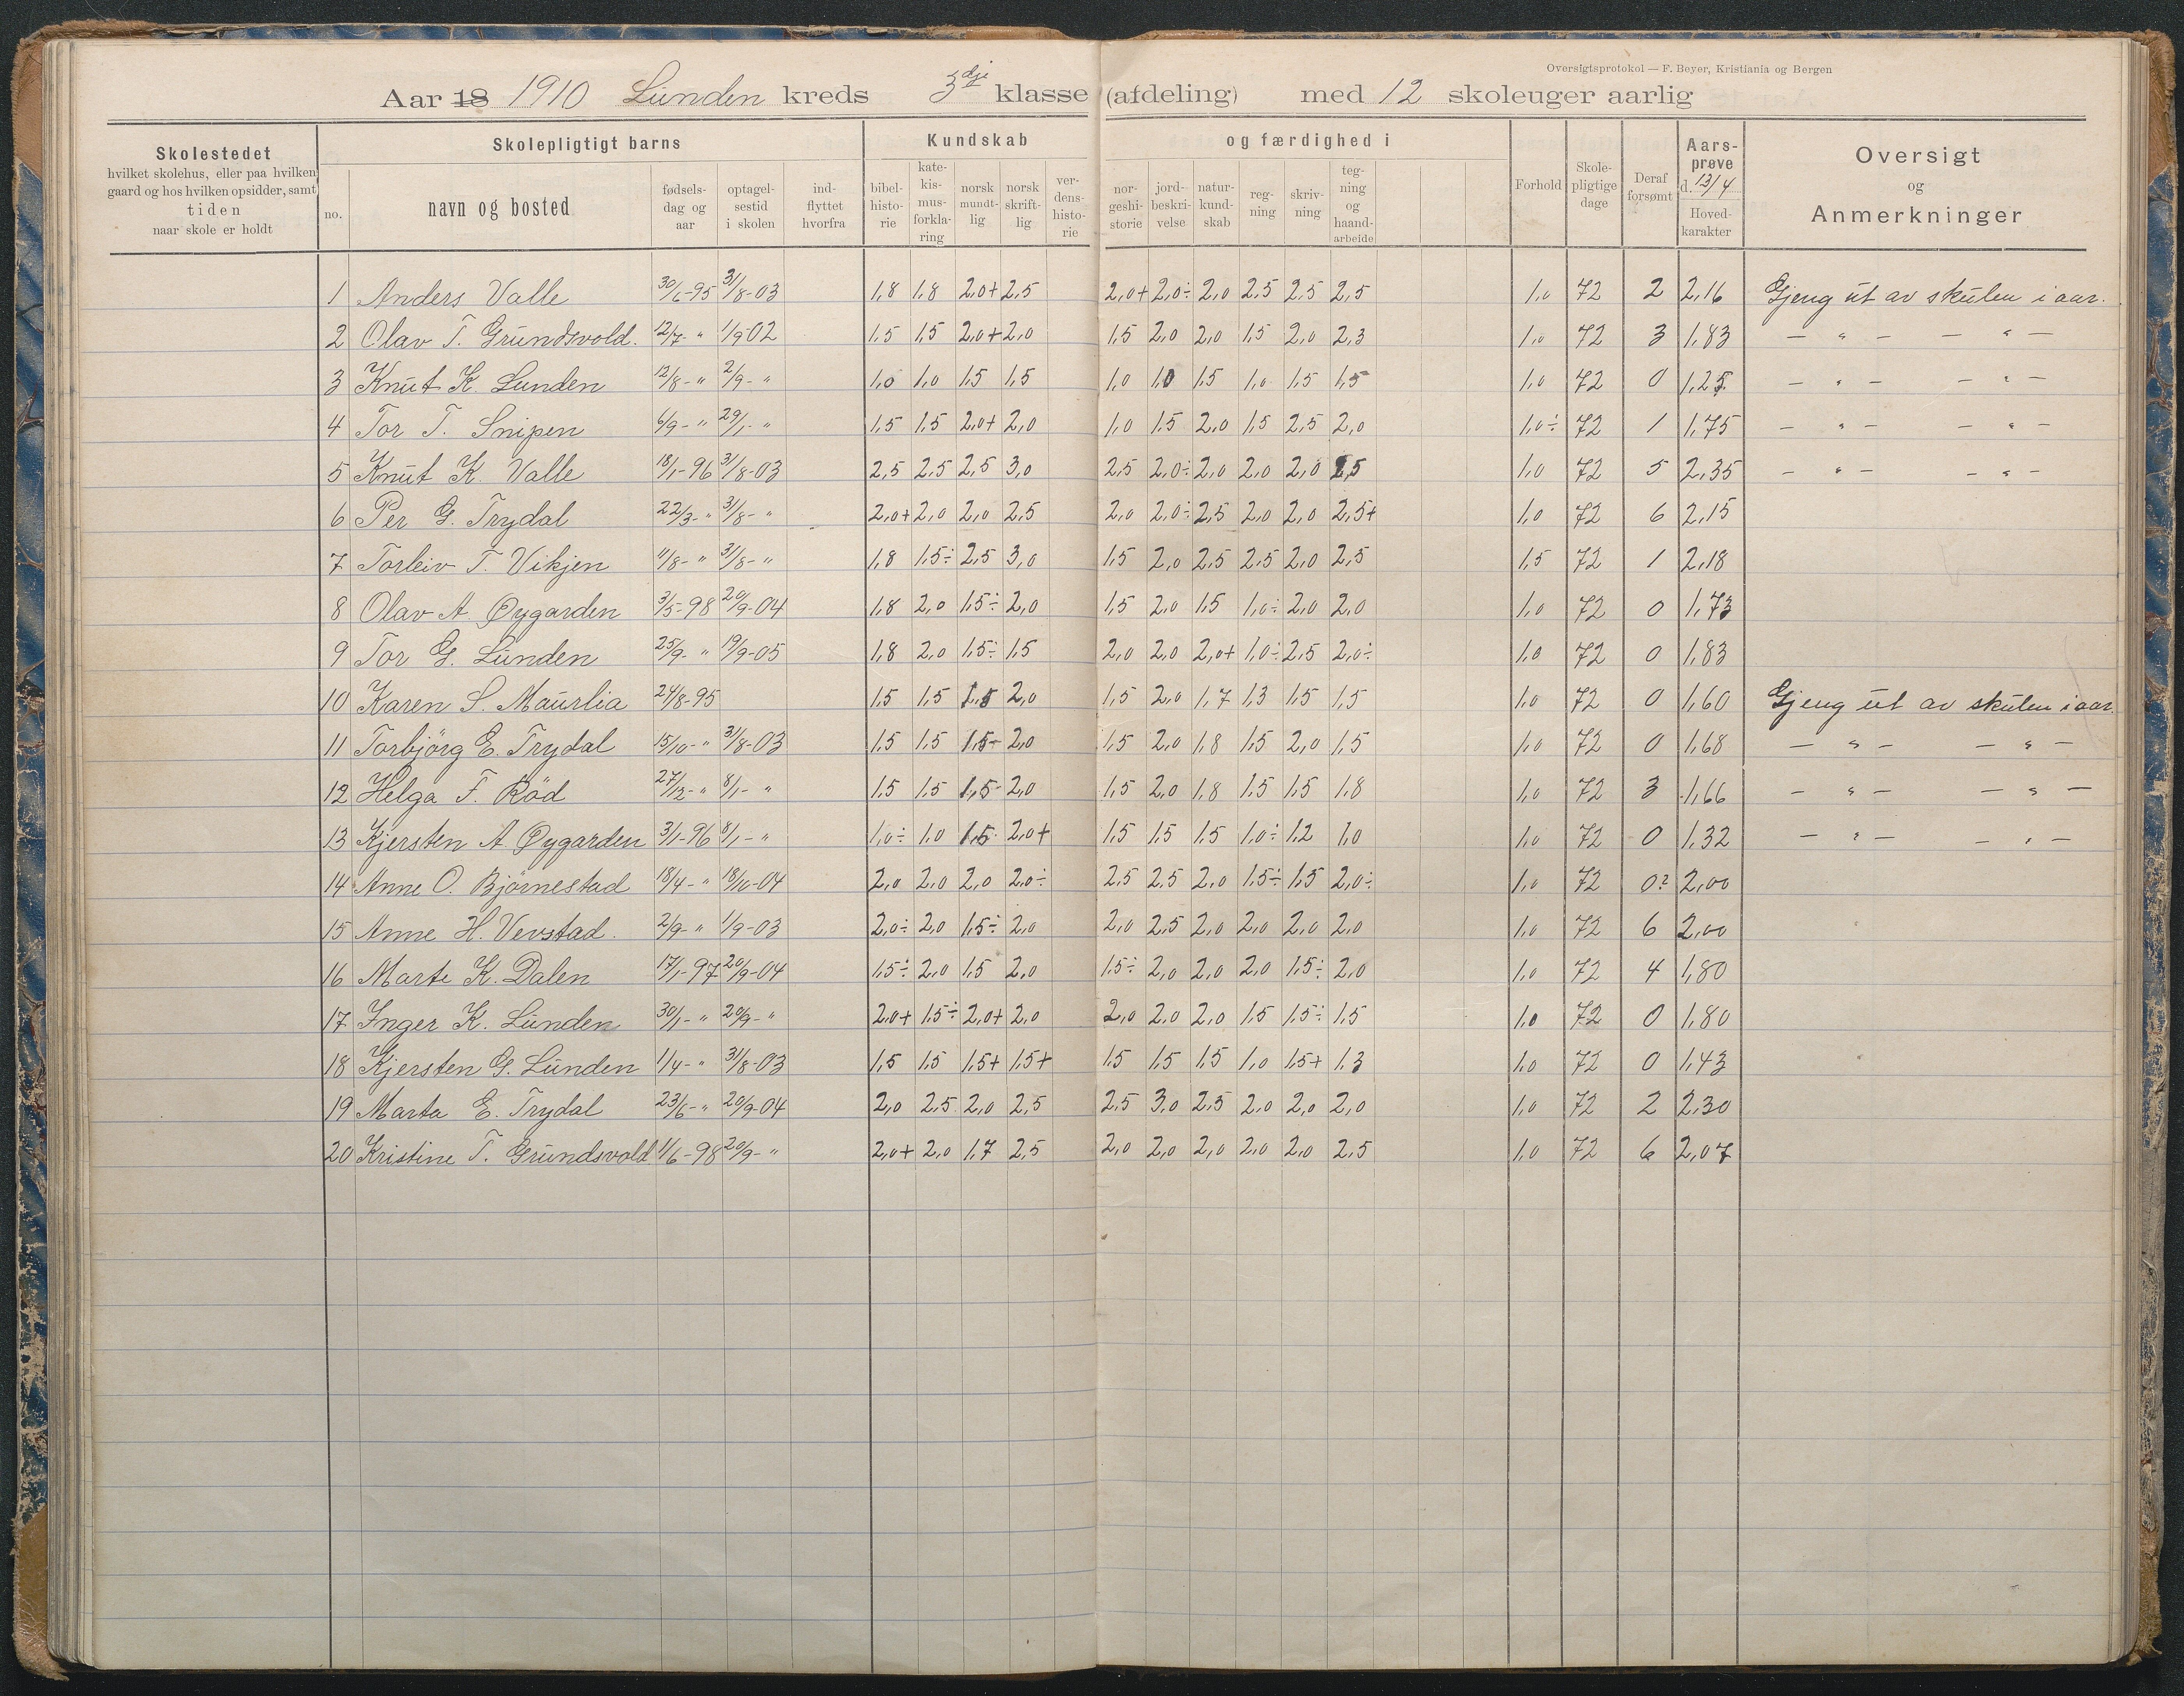 Oversigtsprotokol — F. Beyer, Kristiania og Bergen
Aar 18 1910 Lunden kreds 3dje klasse (afdeling) med 12 skoleuger aarlig
Skolestedet hvilket skolehus, eller paa hvilken gaard og hos hvilken opsidder, samt tiden naar skole er holdt
Skolepligtigt barns
no. navn og bosted fødsels-dag og aar optagel-sestid i skolen ind-flyttet hvorfra
Kundskab og færdighed i
bibel-histo-rie kate-kis-mus-forkla-ring norsk mundt-lig norsk skrift-lig ver-dens-histo-rie nor-geshi-storie jord-beskri-velse natur-kund-skab reg-ning skriv-ning teg-ning og haand-arbeide
Forhold Skole-pligtige dage Deraf forsømt Aars-prøve d. 13/4 Hoved-karakter
Oversigt og Anmerkninger
1 Anders Valle 30/6-95 31/8-03 1,8 1,8 2,0+ 2,5 2,0+ 2,0÷ 2,0 2,5 2,5 2,5 1,0 72 2 2,16 Gjeng ut av skulen i aar.
2 Olav T. Grundsvold. 12/7- " 1/9 02 1,5 1,5 2,0+ 2,0 1,5 2,0 2,0 1,5 2,0 2,3 1,0 72 3 1,83 — " — — " —
3 Knut K. Lunden 12/8- " 2/9- " 1,0 1,0 1,5 1,5 1,0 1,0 1,5 1,0 1,5 1,5 1,0 72 0 1,25 — " — — " —
4 Tor T. Snipen 6/9- " 29/1- " 1,5 1,5 2,0+ 2,0 1,0 1,5 2,0 1,5 2,5 2,0 1,0÷ 72 1 1,75 — " — — " —
5 Knut K. Valle 18/1-96 31/8-03 2,5 2,5 2,5 3,0 2,5 2,0÷ 2,0 2,0 2,0 2,5 1,0 72 5 2,35 — " — — " —
6 Per G. Trydal 22/3- " 31/8- " 2,0+ 2,0 2,0 2,5 2,0 2,0÷ 2,5 2,0 2,0 2,5+ 1,0 72 6 2,15
7 Torleiv T. Vikjen 11/8- " 31/8- " 1,8 1,5÷ 2,5 3,0 1,5 2,0 2,5 2,5 2,0 2,5 1,5 72 1 2,18
8 Olav A. Øygarden 3/5-98 20/9-04 1,8 2,0 1,5÷ 2,0 1,5 2,0 1,5 1,0÷ 2,0 2,0 1,0 72 0 1,73
9 Tor G. Lunden 25/9- " 19/9-05 1,8 2,0 1,5÷ 1,5 2,0 2,0 2,0+ 1,0÷ 2,5 2,0÷ 1,0 72 0 1,83
10 Karen S. Maurlia 24/8-95 1,5 1,5 1,5 2,0 1,5 2,0 1,7 1,3 1,5 1,5 1,0 72 0 1,60 Gjeng ut av skulen i aar.
11 Torbjörg E. Trydal 15/10- " 31/8-03 1,5 1,5 1,5- 2,0 1,5 2,0 1,8 1,5 2,0 1,5 1,0 72 0 1,68 — " — — " —
12 Helga F. Röd 27/12- " 8/1- " 1,5 1,5 1,5- 2,0 1,5 2,0 1,8 1,5 1,5 1,8 1,0 72 3 1,66 — " — — " —
13 Kjersten A. Øygarden 3/1-96 8/1- " 1,0÷ 1,0 1,5 2,0+ 1,5 1,5 1,5 1,0÷ 1,2 1,0 1,0 72 0 1,32 — " — — " —
14 Anne O. Björnestad 18/4- " 18/10-04 2,0 2,0 2,0 2,0÷ 2,5 2,5 2,0 1,5÷ 1,5 2,0÷ 1,0 72 0? 2,00
15 Anne H. Vevstad. 2/9- " 1/9-03 2,0÷ 2,0 1,5÷ 2,0 2,0 2,5 2,0 2,0 2,0 2,0 1,0 72 6 2,00
16 Marte K. Dalen 17/1-97 20/9-04 1,5÷ 2,0 1,5 2,0 1,5÷ 2,0 2,0 2,0 1,5÷ 2,0 1,0 72 4 1,80
17 Inger K. Lunden 30/1- " 20/9- " 2,0+ 1,5÷ 2,0+ 2,0 2,0 2,0 2,0 1,5 1,5÷ 1,5 1,0 72 0 1,80
18 Kjersten G. Lunden 1/4- " 31/8-03 1,5 1,5 1,5+ 1,5+ 1,5 1,5 1,5 1,0 1,5+ 1,3 1,0 72 0 1,43
19 Marta E. Trydal 23/6- " 20/9-04 2,0 2,5 2,0 2,5 2,5 3,0 2,5 2,0 2,0 2,0 1,0 72 2 2,30
20 Kristine T. Grundsvold 1/6-98 20/9- " 2,0+ 2,0 1,7 2,5 2,0 2,0 2,0 2,0 2,0 2,5 1,0 72 6 2,07